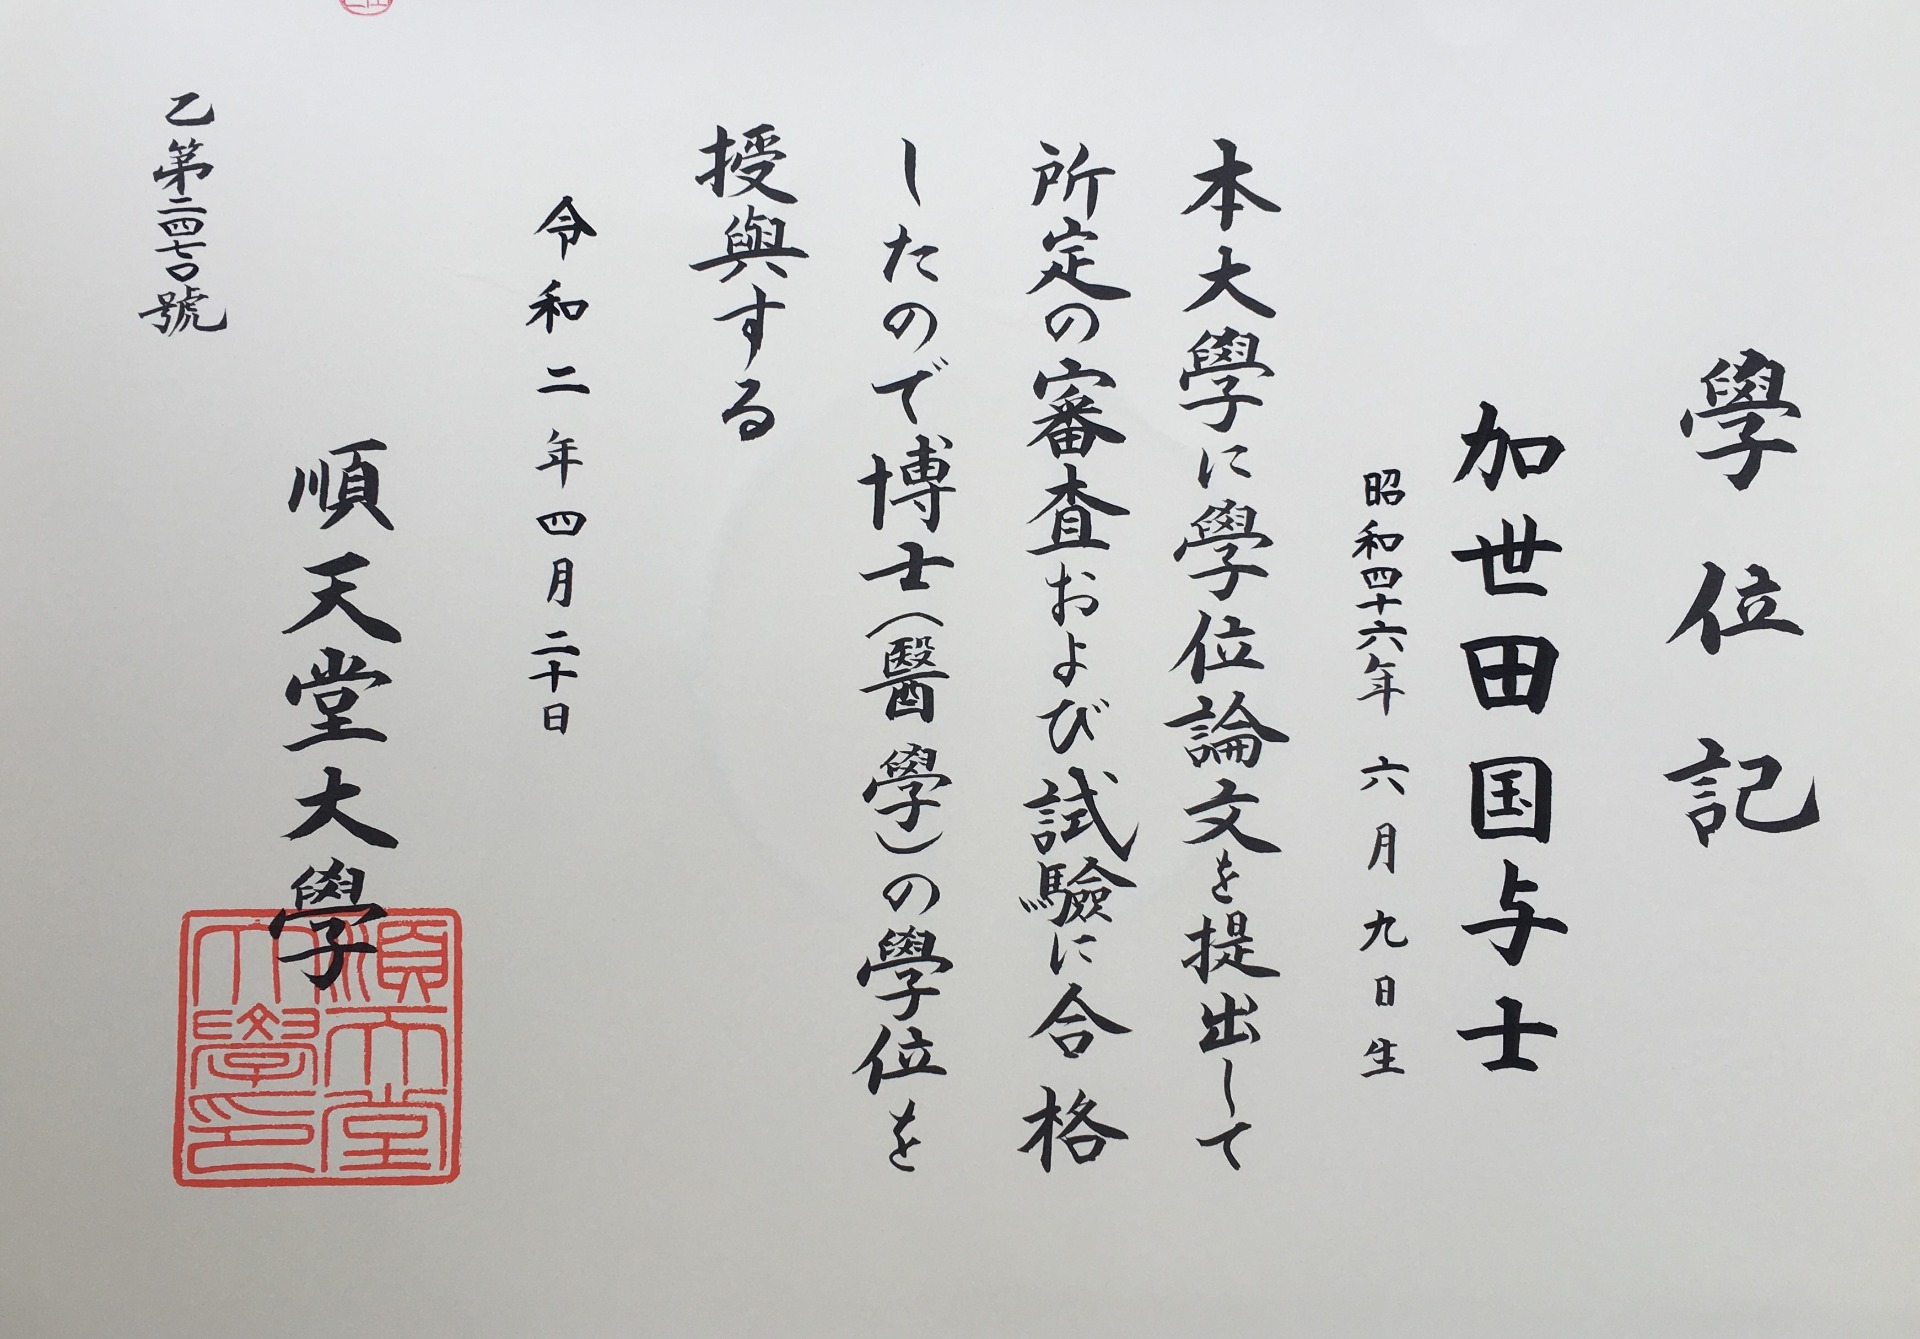 學位記
加世田国与士
昭和四十六年六月九日生
本大學に學位論文を提出して
所定の審査および試驗に合格
したので博士(醫學)の學位を
授與する
令和二年四月二十日
順天堂大學
順天堂大學印
乙第二四七〇號